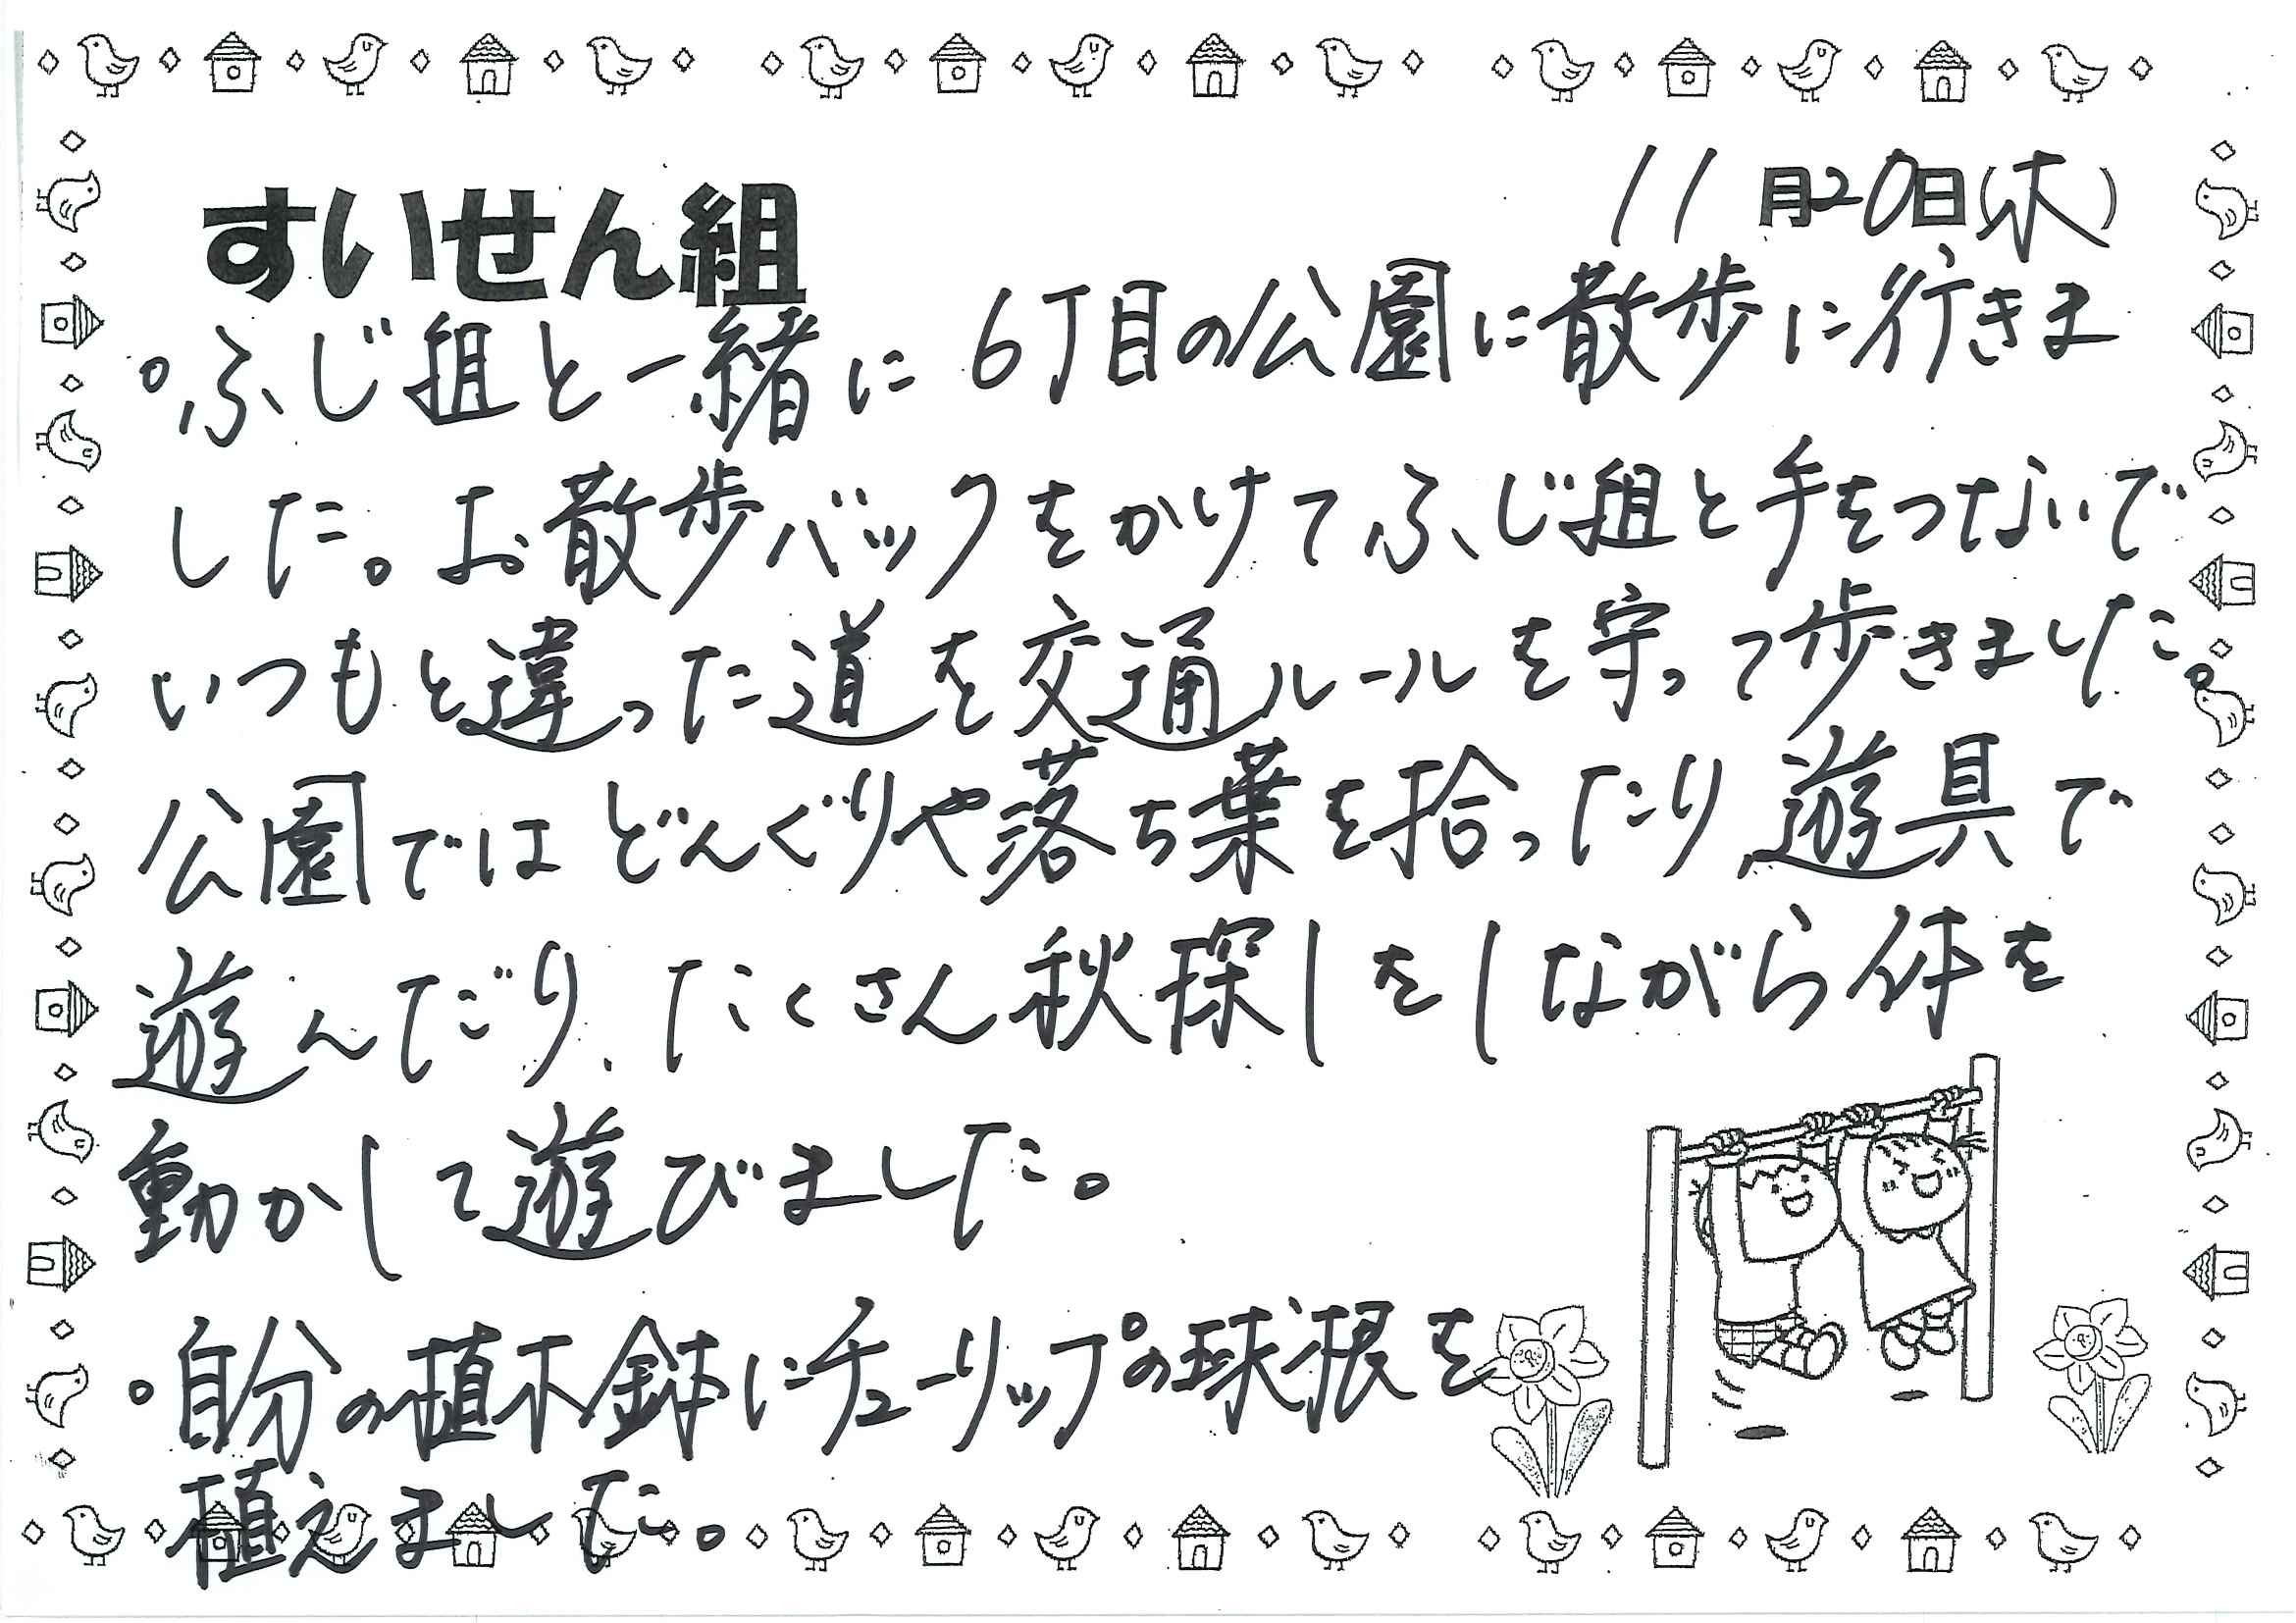 すいせん組
11月20日(木)
。ふじ組と一緒に6丁目の公園に散歩に行きま
した。お散歩バックをかけてふじ組と手をつないで
いつもと違った道を交通ルールを守って歩きました。
公園ではどんぐりや落ち葉を拾ったり、遊具で
遊んだり、たくさん秋探しをしながら体を
動かして遊びました。
。自分の植木鉢にチューリップの球根を
植えました。